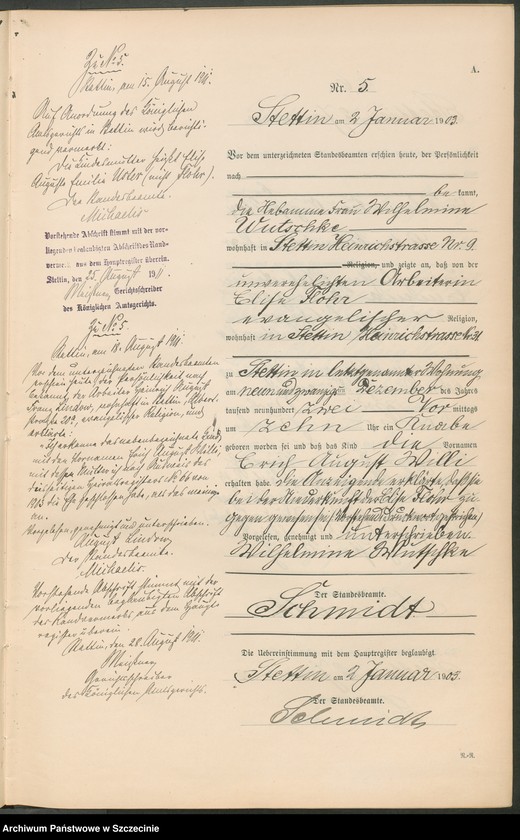 A.
Nr. 5
Stettin am 2 Januar 1903.
Vor dem unterzeichneten Standesbeamten erschien heute, der Persönlichkeit
nach
be kannt,
die Hebamme Frau Wilhelmine
Wutschke
wohnhaft in Stettin Heinrichstrasse Nr. 9
Religion, und zeigte an, daß von der
unverehelichten Arbeiterin
Elise Flohr
evangelischer Religion,
wohnhaft in Stettin Heinrichstrasse Nr. 31
zu Stettin in letztgenannter Wohnung
am neunundzwanzig Dezember des Jahres
tausend neunhundert zwei Vor mittags
um zehn Uhr ein Knabe
geboren worden sei und daß das Kind die Vornamen
Erich August Willi
erhalten habe. Die Anzeigende erklärte, daß sie
bei der Niederkunft der Flohr zu
gegen gewesen sei
Vorgelesen, genehmigt und unterschrieben
Wilhelmine Wutschke
Der Standesbeamte.
Schmidt
Die Uebereinstimmung mit dem Hauptregister beglaubigt
Stettin am 2 Januar 1903.
Der Standesbeamte.
Schmidt
R.-R.
Zu No 5.
Stettin, am 15. August 1911.
Auf Anordnung des Königlichen
Amtsgerichts in Stettin wird berichti-
gend vermerkt:
Die Kindesmutter heißt Elise
Auguste Emilie (nicht Flohr).
Der Standesbeamte.
Michaelis
Vorstehende Abschrift stimmt mit der vor-
liegenden beglaubigten Abschrift des Rand-
vermerks aus dem Hauptregister überein.
Stettin, den 25. August 1911.
Gerichtsschreiber
des Königlichen Amtsgerichts.
Zu No 5.
Stettin, am 18. August 1911.
Vor dem unterzeichneten Standesbeamten
erschien heute, der Persönlichkeit nach
bekannt, der Arbeiter August
Franz Lindow, wohnhaft in Stettin,
straße 20, evangelischer Religion, und
erklärte:
Ich erkenne das nebenbezeichnete Kind
mit den Vornamen Erich August Willi,
mit dessen Mutter ich nach Ausweis des
diesseitigen Heiratsregisters No von
die Ehe geschlossen habe, als das meinige
an.
Vorgelesen, genehmigt und unterschrieben.
August Lindow
Der Standesbeamte.
Michaelis.
Vorstehende Abschrift stimmt mit der
vorliegenden beglaubigten Abschrift
des Randvermerks aus dem Haupt-
register überein.
Stettin, den 28. August 1911.
Gerichtsschreiber
des Königlichen Amtsgerichts.
Archiwum Państwowe w Szczecinie